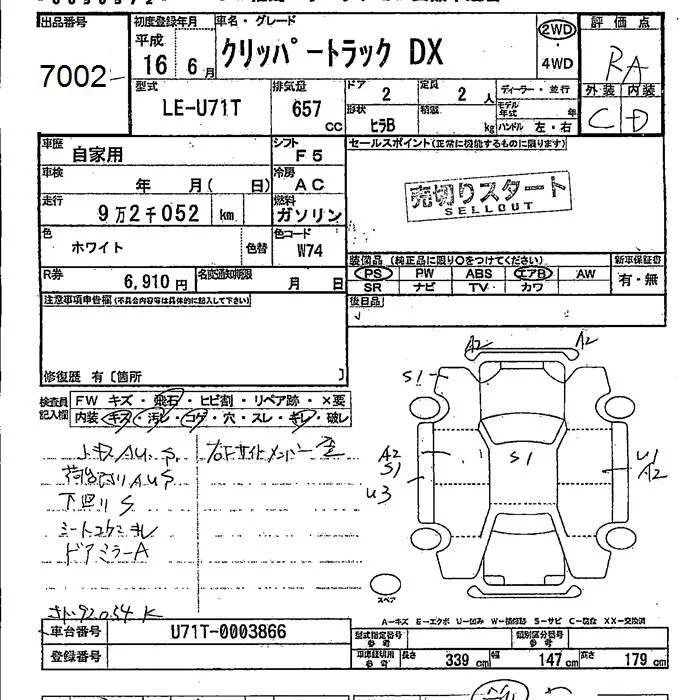 出品番号
7002
初度登録年月
平成
16 6月
車名・グレード
クリッパートラック DX
2WD
4WD
評価点
RA
外装 内装
C D
型式
LE-U71T
排気量
657 cc
ドア
2
定員
2 人
形状
ヒラB
積載
kg
ディーラー・並行
モデル年式 年
ハンドル 左・右
車歴
自家用
シフト
F5
セールスポイント(正常に機能するものに限ります)
車検
年 月( 日)
冷房
AC
売切りスタート
SELLOUT
走行
9万2千052 km
燃料
ガソリン
色
ホワイト
色替
色コード
W74
装備品(純正品に限り○をつけてください)
新車保証書
PS PW ABS エアB AW
有・無
SR ナビ TV カワ
R券
6,910円
名変通知期限
月 日
後日品
注意事項申告欄(不具合内容等は具体的に記入して下さい)
修復歴 有〔箇所 〕
検査員記入欄
FW キズ・飛石・ヒビ割・リペア跡・×要
内装・キズ・汚レ・コゲ・穴・スレ・キレ・破レ
下回りS
ドアミラーA
A2 A2
S1
A2
S1
S1
U1
A2
U3
スペア
A-キズ E-エクボ U-凹み W-補修跡 S-サビ C-腐食 XX-交換済
車台番号
U71T-0003866
登録番号
型式指定番号
参考
類別区分番号
参考
車検証明用
参考
長さ 339 cm 幅 147 cm 高さ 179 cm